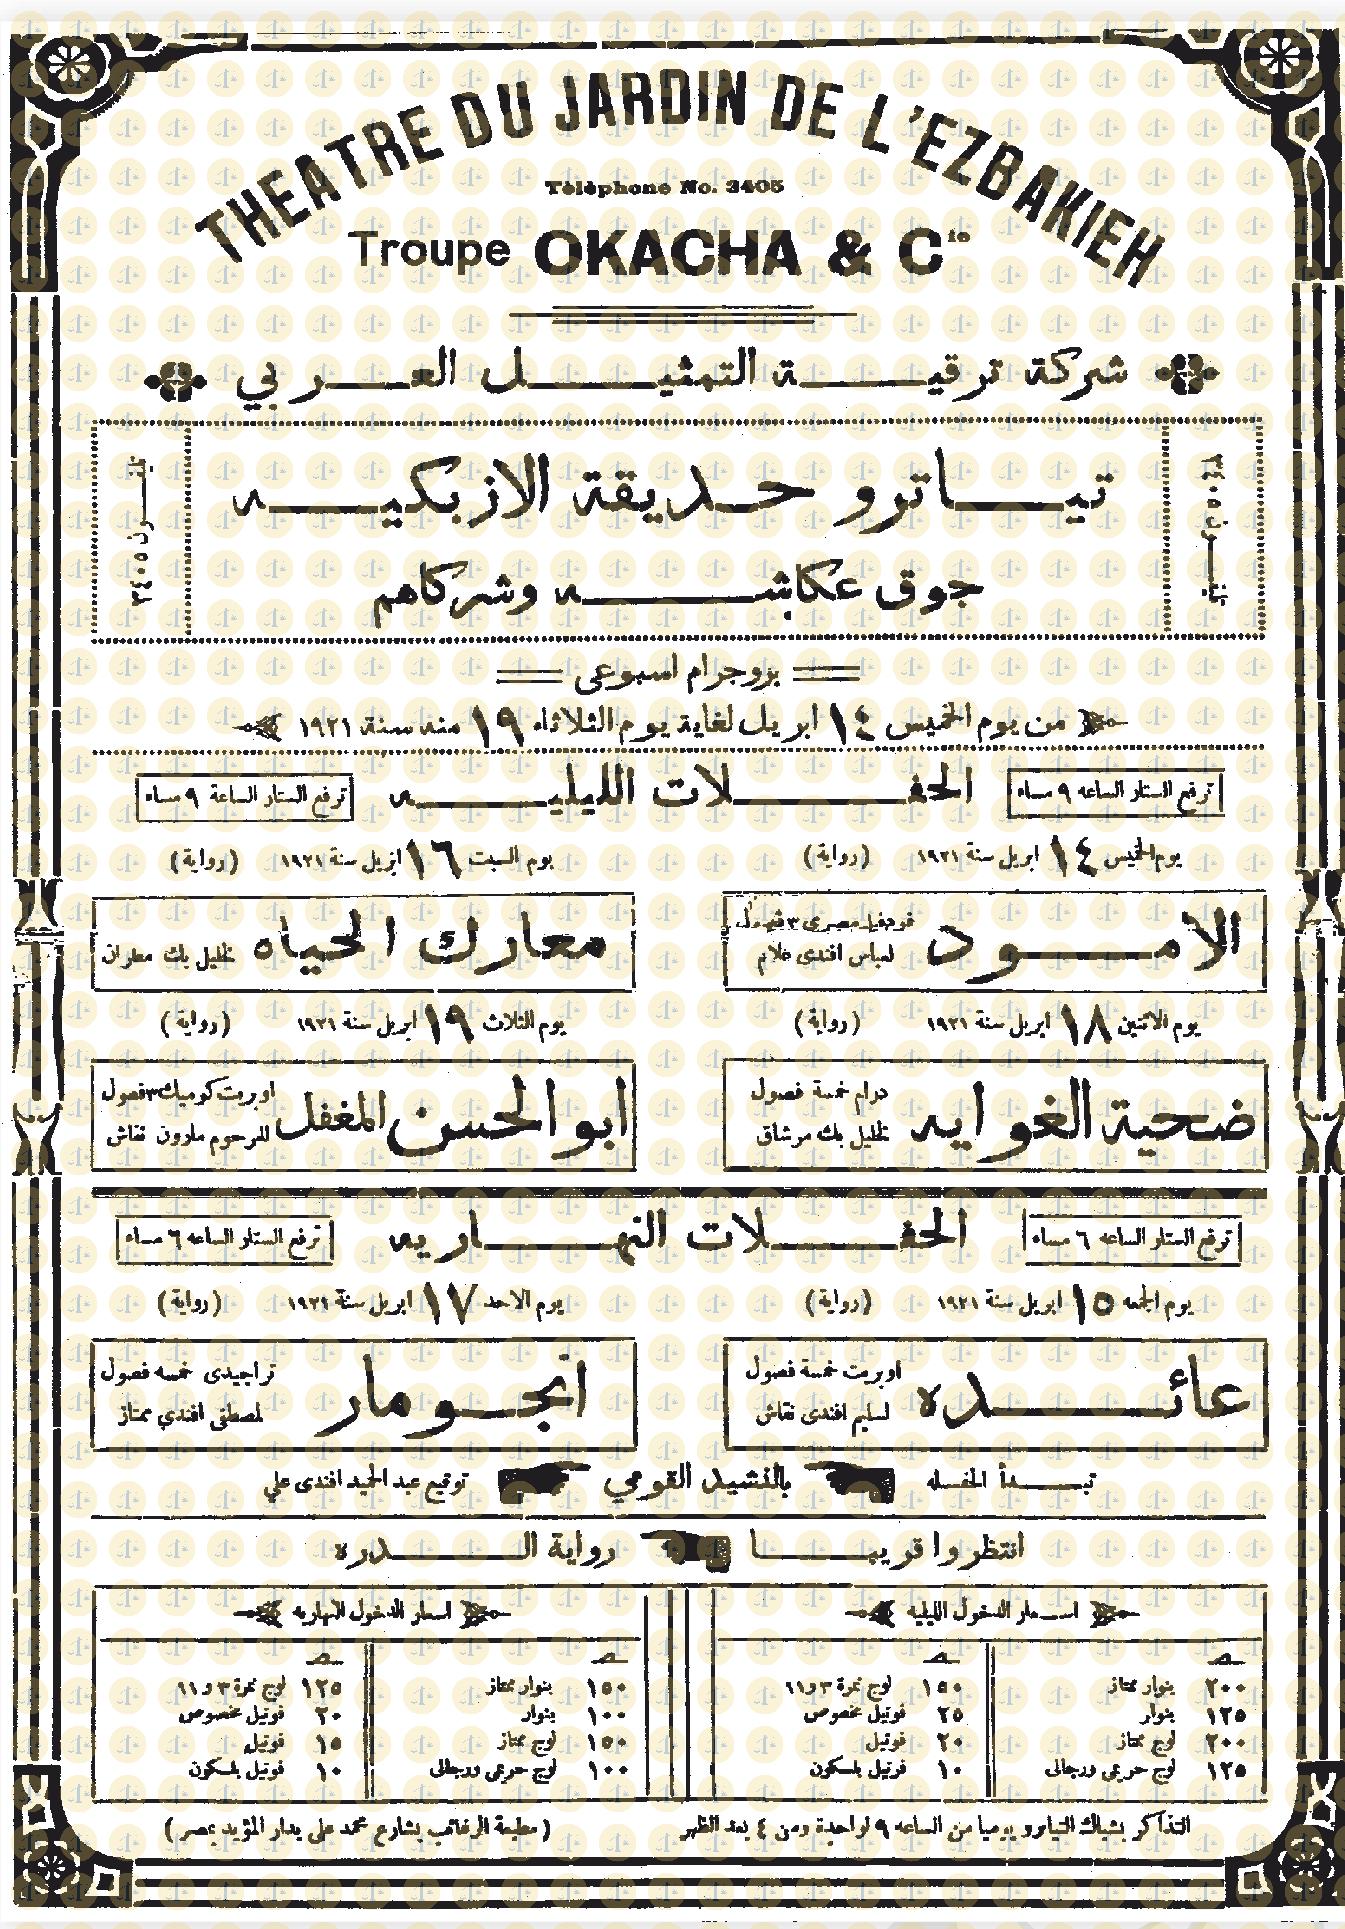 THEATRE DU JARDIN DE L'EZBAKIEH
Téléphone No. 3405
Troupe OKACHA & Cie
شركة ترقية التمثيل العربي
تياترو حديقة الازبكيه
جوق عكاشه وشركاهم
تليفون ٣٤٠٥
تليفون ٣٤٠٥
بروجرام اسبوعى
من يوم الخميس ١٤ ابريل لغاية يوم الثلاثاء ١٩ منه سنة ١٩٢١
ترفع الستار الساعه ٩ مساء
الحفلات الليليه
ترفع الستار الساعة ٩ مساء
يوم الخميس ١٤ ابريل سنة ١٩٢١ (رواية)
الامود فودفيل مصرى ٣ فصول
لعباس افندى علام
يوم السبت ١٦ ابريل سنة ١٩٢١ (رواية)
معارك الحياه خليل بك مطران
يوم الاثنين ١٨ ابريل سنة ١٩٢١ (رواية)
ضحية الغوايه درام خمسة فصول
خليل بك مرشاق
يوم الثلاث ١٩ ابريل سنة ١٩٢١ (رواية)
ابو الحسن المغفل اوبريت كوميك ٣ فصول
للمرحوم مارون نقاش
ترفع الستار الساعه ٦ مساء
الحفلات النهاريه
ترفع الستار الساعه ٦ مساء
يوم الجمعه ١٥ ابريل سنة ١٩٢١ (رواية)
عائده اوبريت خمسة فصول
لسليم افندى نقاش
يوم الاحد ١٧ ابريل سنة ١٩٢١ (رواية)
انجومار تراجيدى خمسه فصول
لمصطفى افندي ممتاز
تبدأ الحفله بالنشيد القومي توقيع عبد الحميد افندى علي
انتظروا قريبا رواية الدره
اسعار الدخول الليليه
٢٠٠ بنوار ممتاز
١٢٥ بنوار
٢٠٠ لوج ممتاز
١٢٥ لوج حريمى ورجالى
١٥٠ لوج نمرة ٣ و ١١
٢٥ فوتيل مخصوص
٢٠ فوتيل
١٠ فوتيل بلسكون
اسعار الدخول النهاريه
١٥٠ بنوار ممتاز
١٠٠ بنوار
١٥٠ لوج ممتاز
١٠٠ لوج حريمى ورجالى
١٢٥ لوج نمرة ٣ و ١١
٢٠ فوتيل مخصوص
١٥ فوتيل
١٠ فوتيل بلسكون
التذاكر بشباك التياترو يوميا من الساعه ٩ لواحدة ومن ٤ بعد الظهر
(مطبعة الرغائب بشارع محمد على بدار المؤيد بمصر)